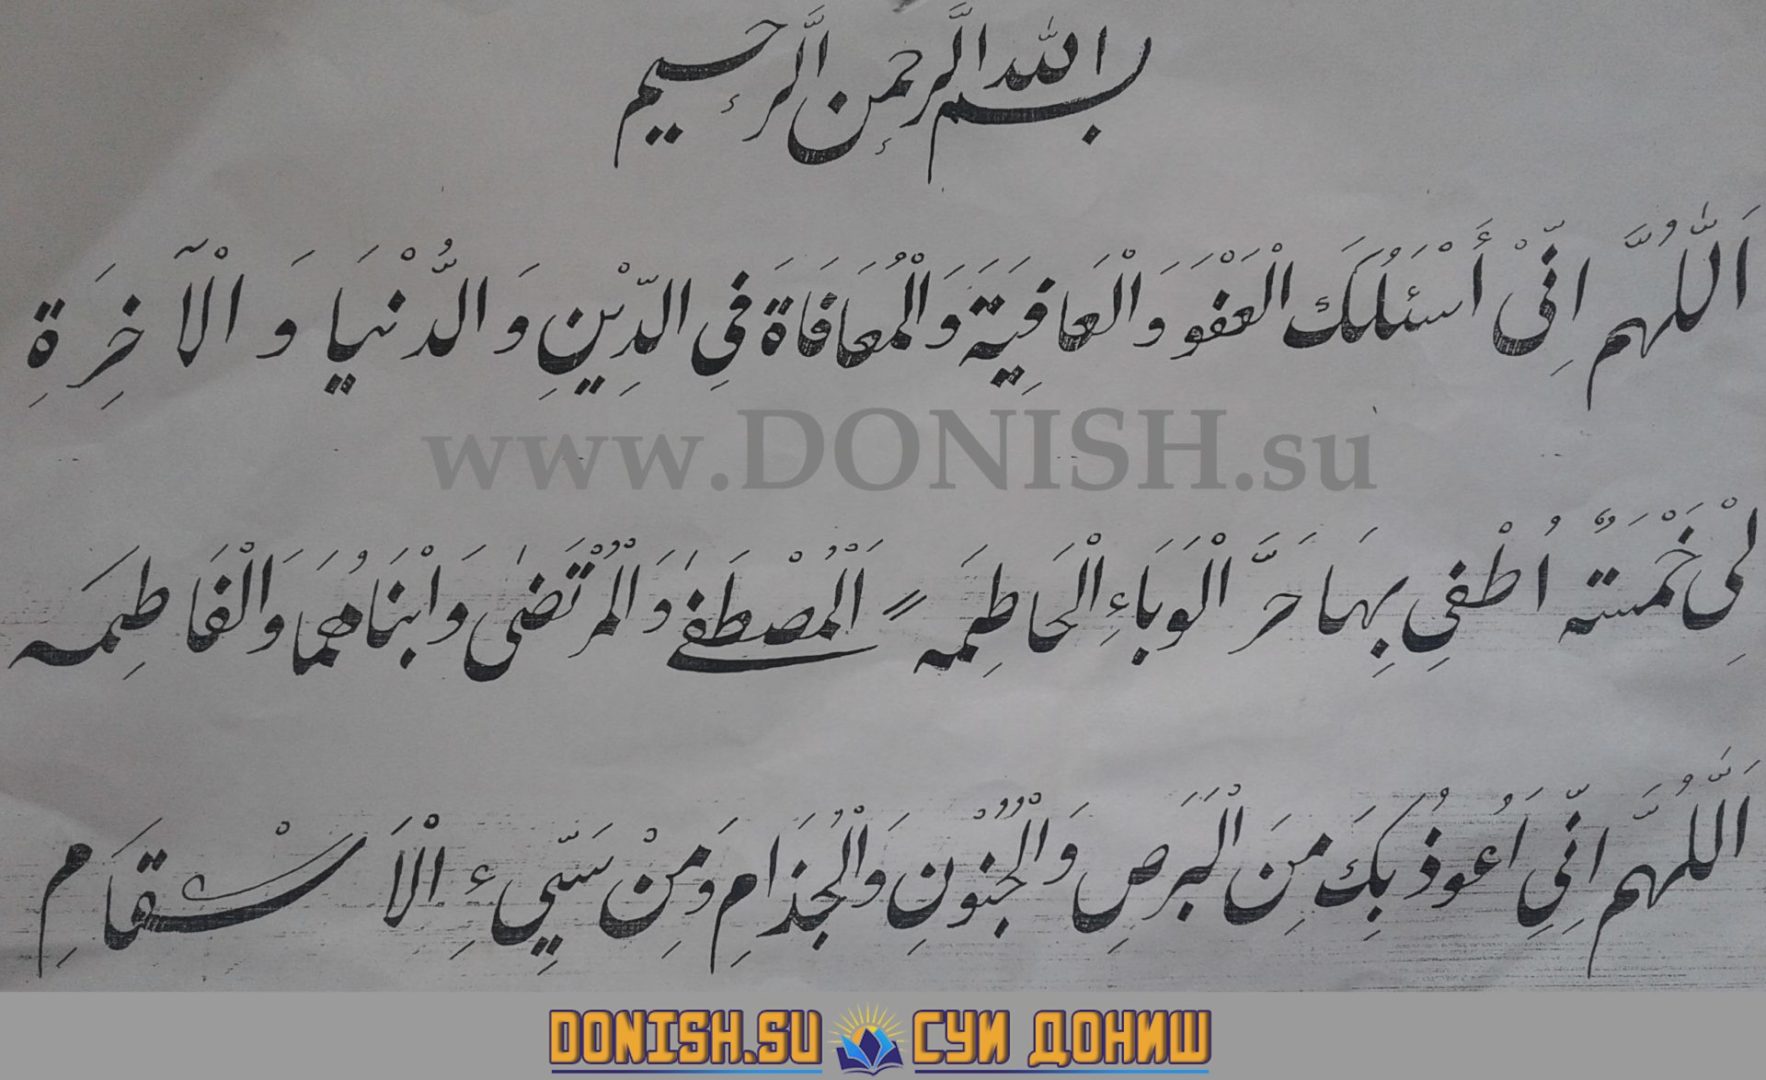 بسم الله الرَّحمنِ الرَّحِيم
اَللّٰهُمَّ اِنِّیْ أَسْئَلُكَ الْعَفْوَ وَالْعَافِيَةَ وَالْمُعَافَاةَ فِي الدِّيْنِ وَ الدُّنْيَا وَ الْآخِرَةِ
www.DONISH.su
لِیْ خَمْسَةٌ اُطْفِي بِهَا حَرَّ الْوَبَاءِ الْحَاطِمَه اَلْمُصْطَفٰی وَ الْمُرْتَضٰی وَ ابْنَاهُمَا وَ الْفَاطِمَه
اَللّٰهُمَّ اِنِّي اَعُوْذُ بِكَ مِنَ الْبَرَصِ وَ الْجُنُوْنِ وَ الْجُذَامِ وَ مِنْ سَيِّيءِ الْاَسْقَامِ
DONISH.SU СУИ ДОНИШ